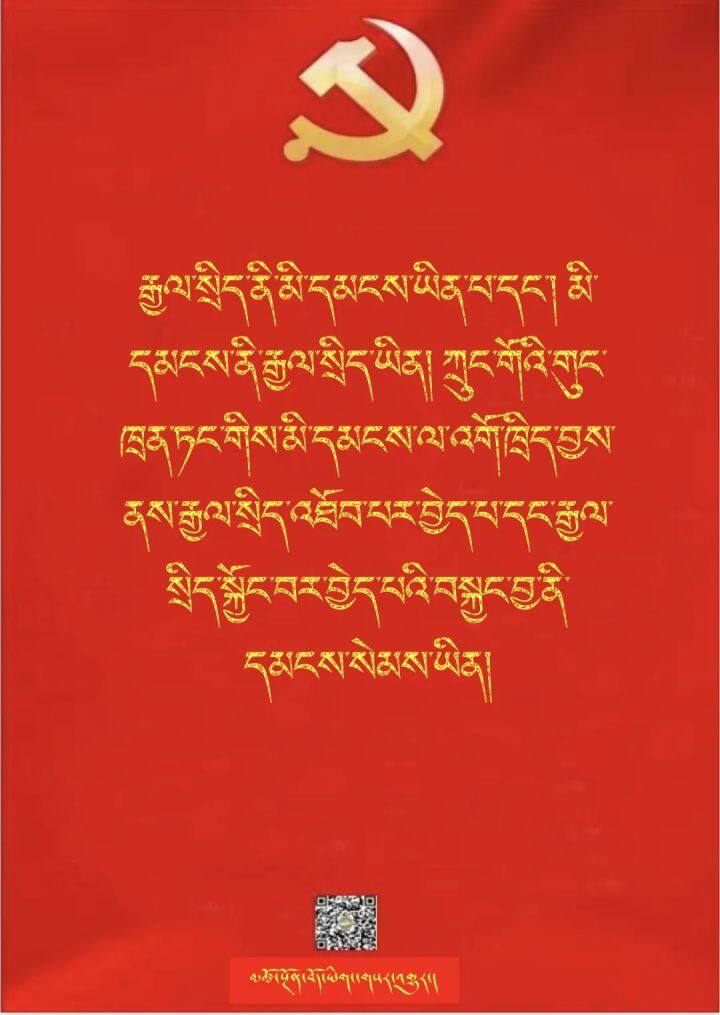 རྒྱལ་སྲིད་ནི་མི་དམངས་ཡིན་པ་དང་། མི་
དམངས་ནི་རྒྱལ་སྲིད་ཡིན། ཀྲུང་གོའི་གུང་
ཁྲན་ཏང་གིས་མི་དམངས་ལ་འགོ་ཁྲིད་བྱས་
ནས་རྒྱལ་སྲིད་འཐོབ་པར་བྱེད་པ་དང་རྒྱལ་
སྲིད་སྐྱོང་བར་བྱེད་པའི་བསྐྱང་བྱ་ནི་
དམངས་སེམས་ཡིན།